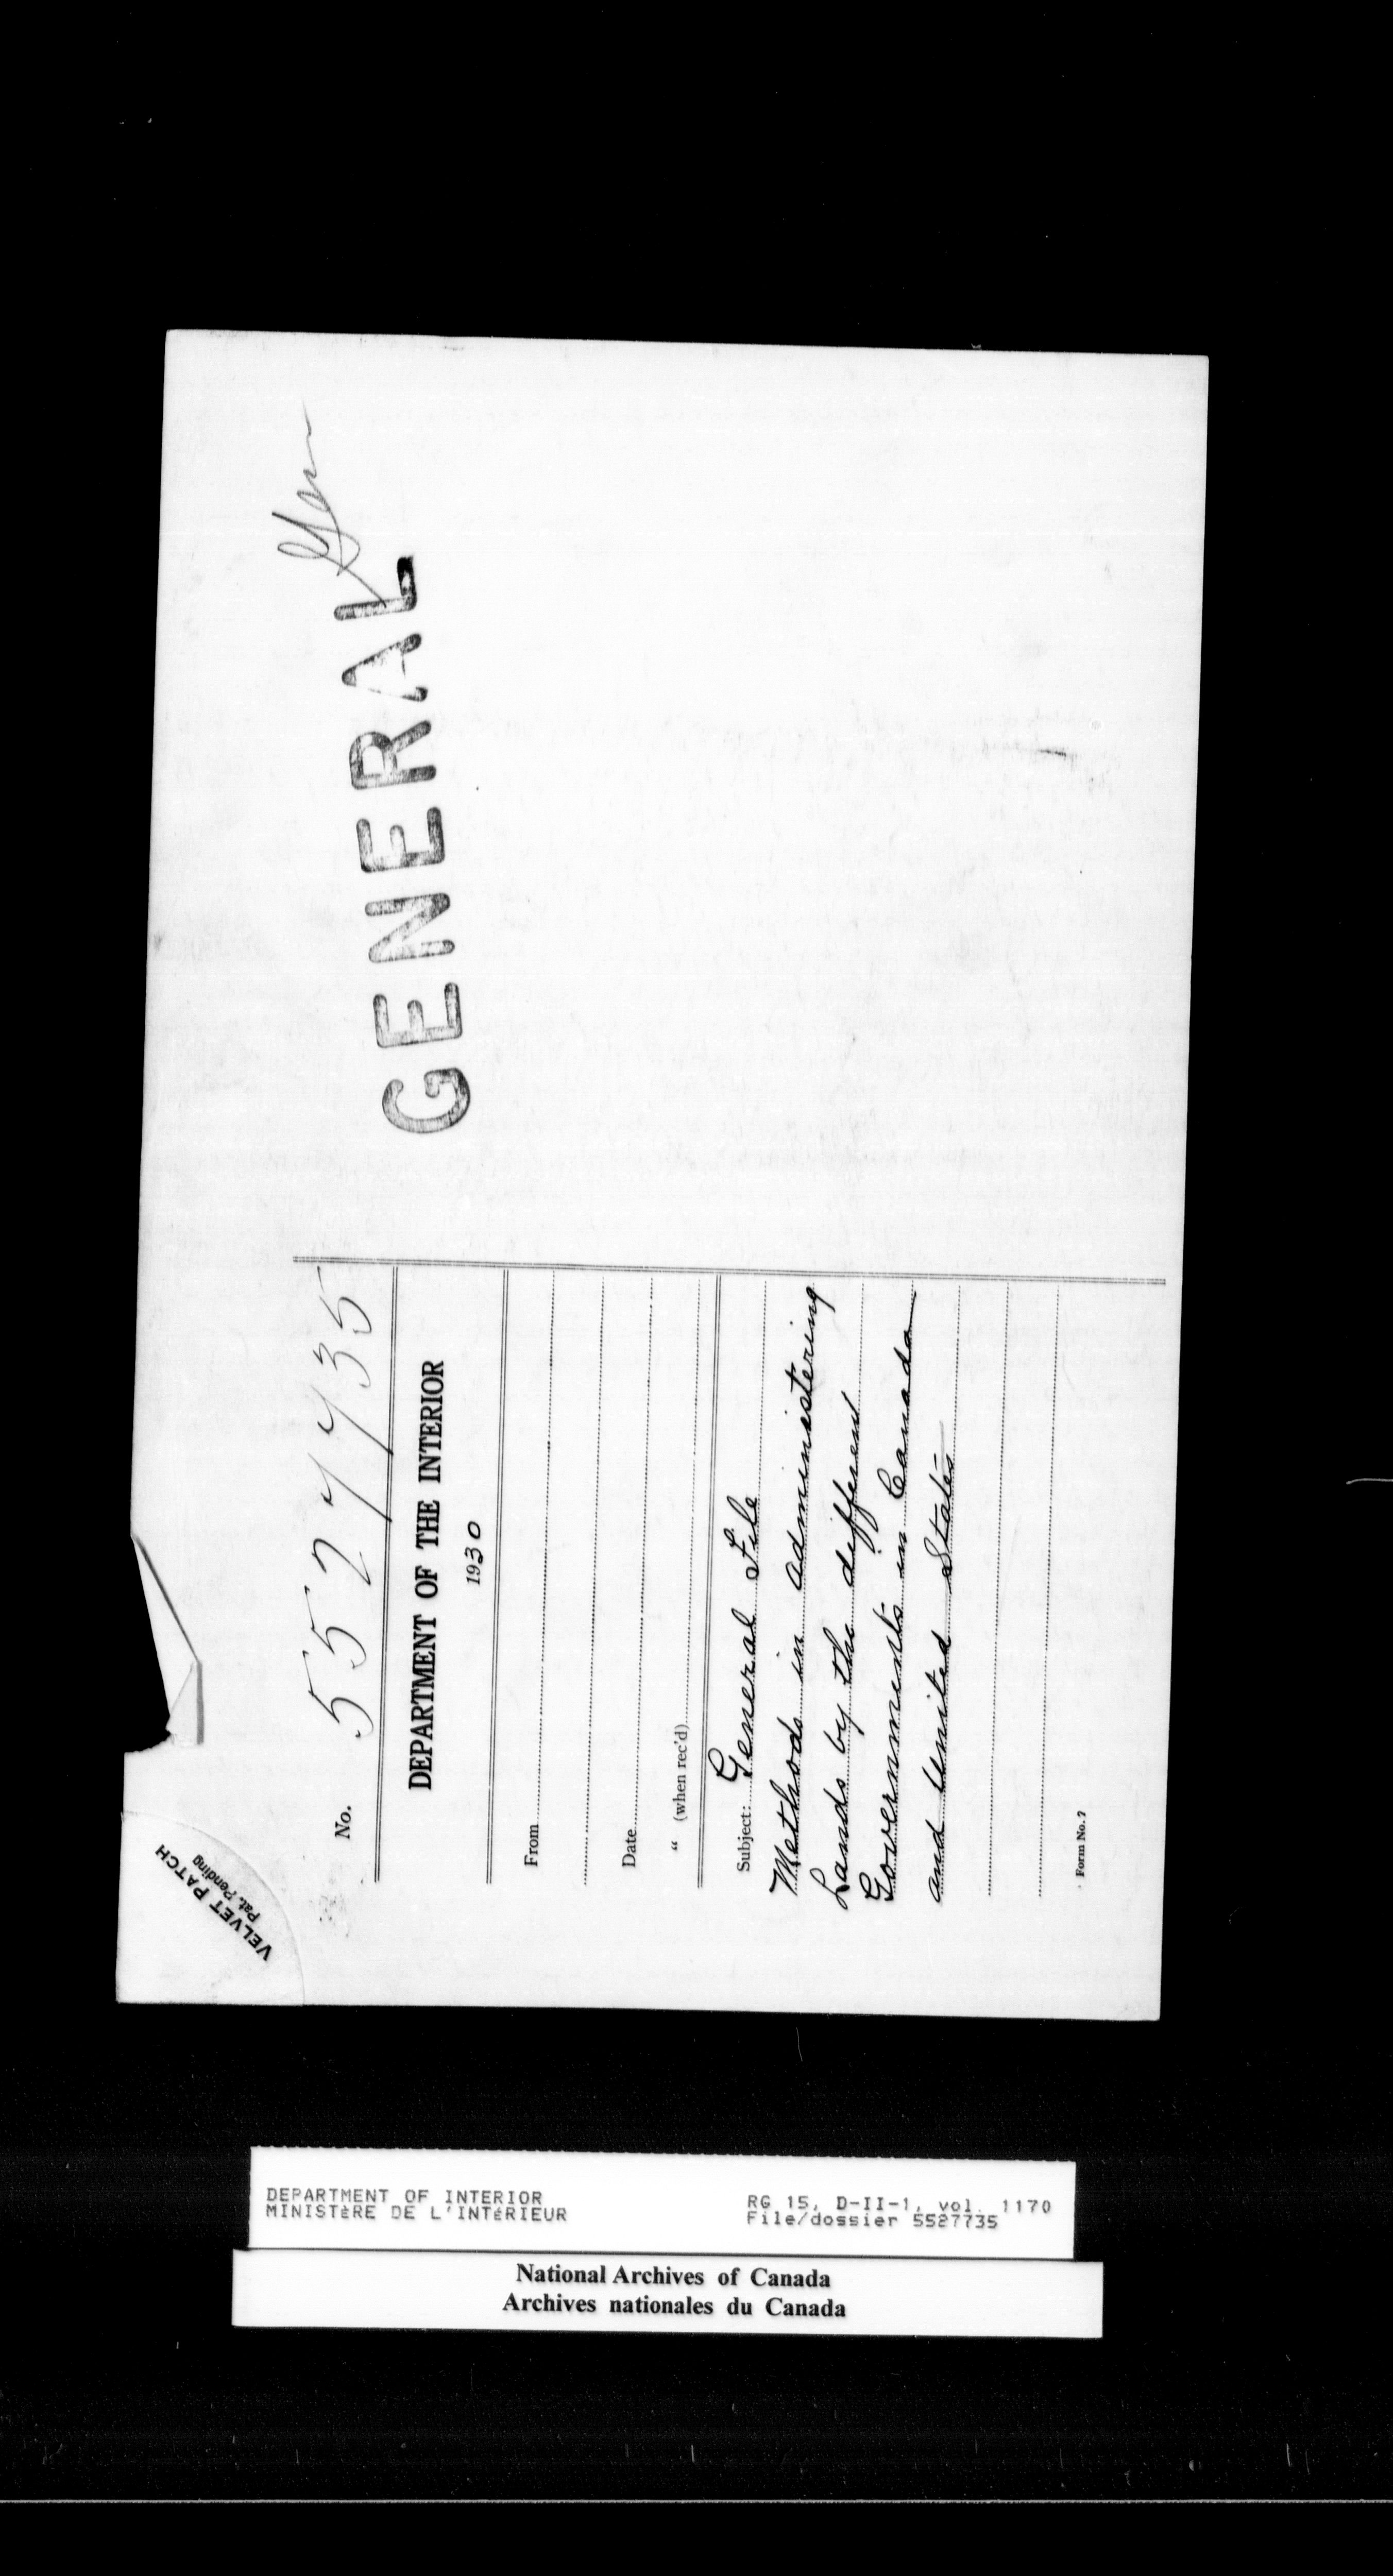 VELVET PATCH
Pat. Pending
No. 5527735
DEPARTMENT OF THE INTERIOR
1930
From
Date
“ (when rec'd)
Subject: General File
Methods in administering
Lands by the different
Governments in Canada
and United States
Form No. 2
GENERAL
Gen
DEPARTMENT OF INTERIOR
MINISTÈRE DE L'INTÉRIEUR
RG 15, D-II-1, vol. 1170
File/dossier 5527735
National Archives of Canada
Archives nationales du Canada